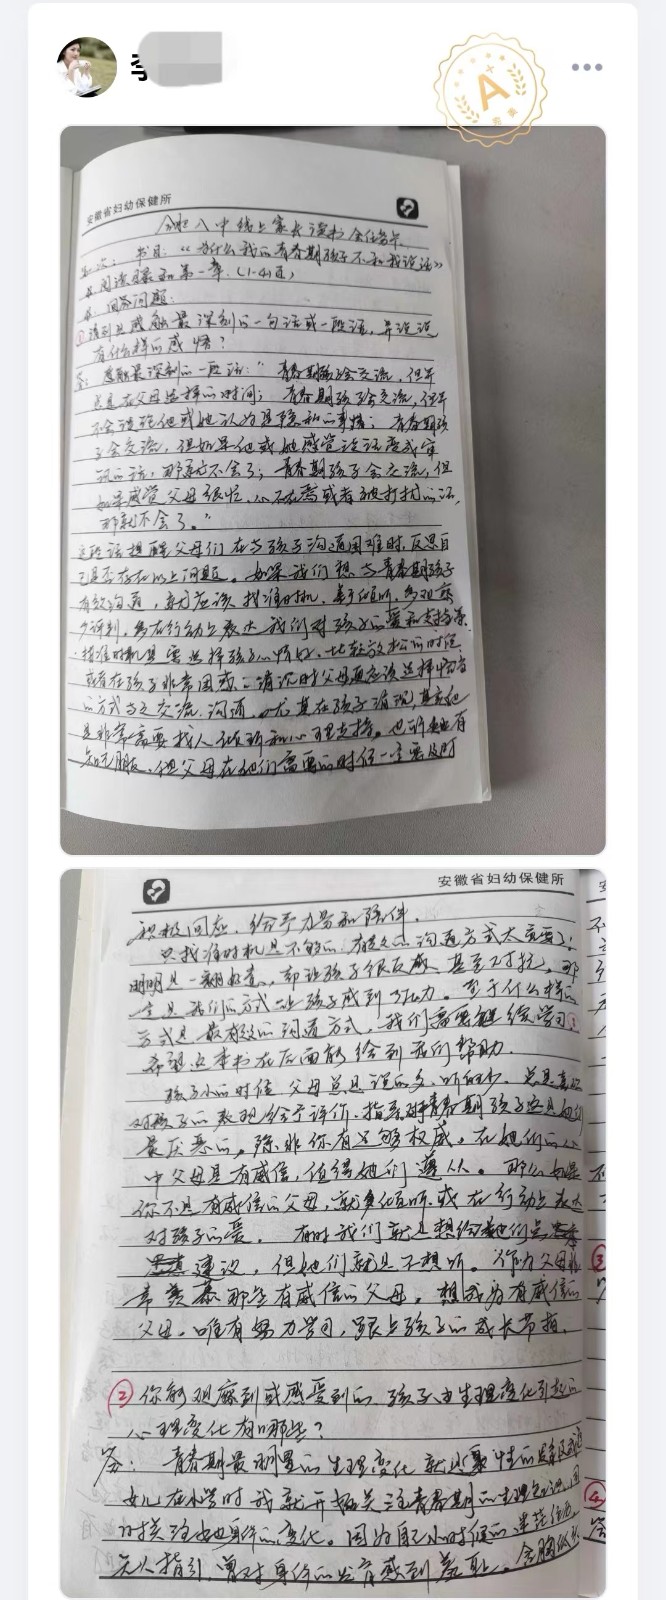 李
A
安徽省妇幼保健所
合肥八中线上家长读书会任务单
书目：“为什么我的青春期孩子不和我说话”
阅读目录和第一章.(1-41页)
回答问题：
①请列出感触最深刻的一句话或一段话，并说说
有什么样的感悟？
答：感触最深刻的一段话：“青春期孩子会交流，但并
总是在父母选择的时间；青春期孩子会交流，但并
不会谈论他或她认为是隐私的事情；青春期孩
子会交流，但如果他或她感觉谈话变成审
讯的话，那就不会了；青春期孩子会交流，但
如果感觉父母很忙、心不在焉或者被打扰的话，
那就不会了。”
这段话提醒父母们在与孩子沟通困难时，反思自
己是否存在以上问题。如果我们想与青春期孩子
有效沟通，就应该找准时机，善于倾听，多观察
少评判，多在行动上表达我们对孩子的爱和支持
找准时机是需选择孩子心情好、比较放松的时候
或者在孩子非常困惑、消沉时父母更应该选择恰当
的方式与之交流、沟通。尤其在孩子消沉，其实他
是非常需要找人倾听和心理支持。也许她有
知心朋友，但父母在他们需要的时候一定要及时
安徽省妇幼保健所
积极回应，给予力量和陪伴。
只找准时机是不够的，有效的沟通方式太重要了；
明明是一翻好意，却让孩子很反感、甚至对抗，那
一定是我们的方式让孩子感到了压力。至于什么样的
方式是最有效的沟通方式，我们需要继续学习
希望这本书在后面能给到我们帮助。
孩子小的时候，父母总是说的多，听的少，总是喜欢
对孩子的表现给予评价、指导，对青春期孩子这是他们
最厌恶的，除非你有足够权威。在她们的心
中父母是有威信，值得她们遵从。那么如果
你不是有威信的父母，就多倾听或在行动上表达
对孩子的爱。有时我们就是想给她们点
建议，但她们就是不想听。作为父母非
常羡慕那些有威信的父母，想成为有威信的
父母，唯有努力学习，跟上孩子的成长节拍。
②你能观察到或感受到的，孩子由生理变化引起的
心理变化有哪些？
答：青春期最明显的生理变化就是性的发育
女儿在小学时我就开始关注青春期的生理知识，
关注她身体的变化。因为自己小时候的
无人指引，曾对身体的发育感到羞耻、含胸
③
④